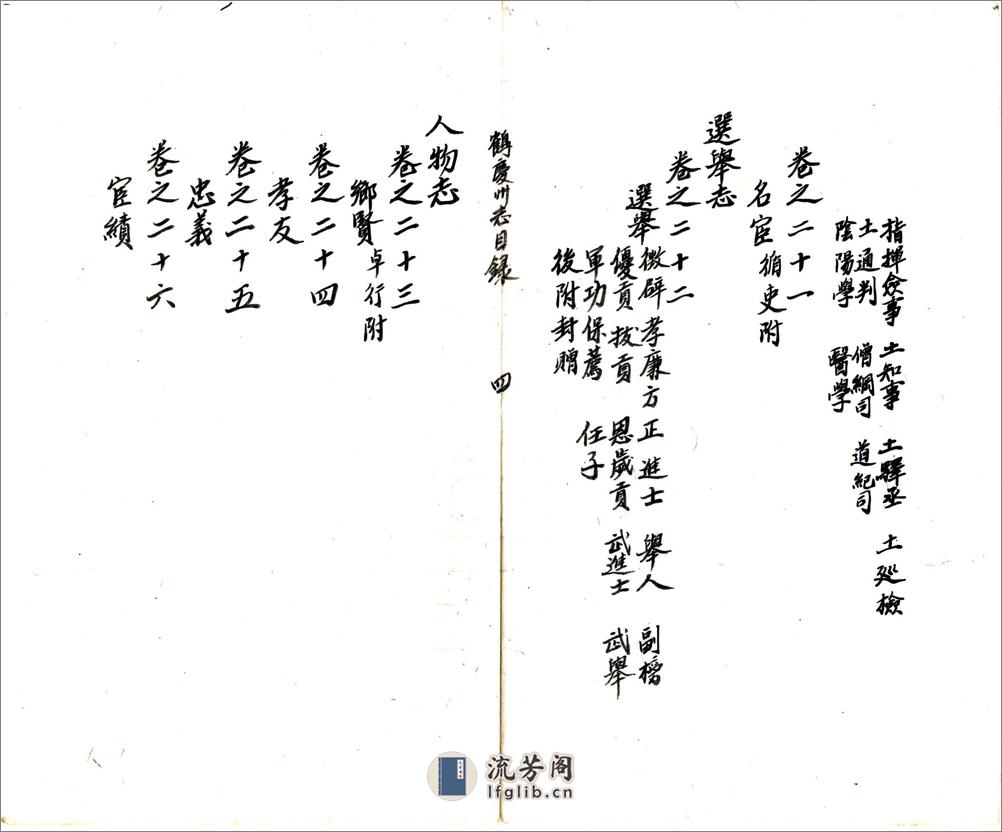 指揮僉事　土知事　土驛丞　土廵檢
土通判　僧綱司　道紀司
陰陽學　醫學
卷之二十一
名宦循吏附
選舉志
卷之二十二
選舉徵辟孝廉方正　進士　舉人　副榜
優貢　拔貢　恩歲貢　武進士　武舉
軍功保薦　任子
後附封贈
鶴慶州志目録　四
人物志
卷之二十三
鄉賢卓行附
卷之二十四
孝友
卷之二十五
忠義
卷之二十六
宦績
流芳阁
lfglib.cn